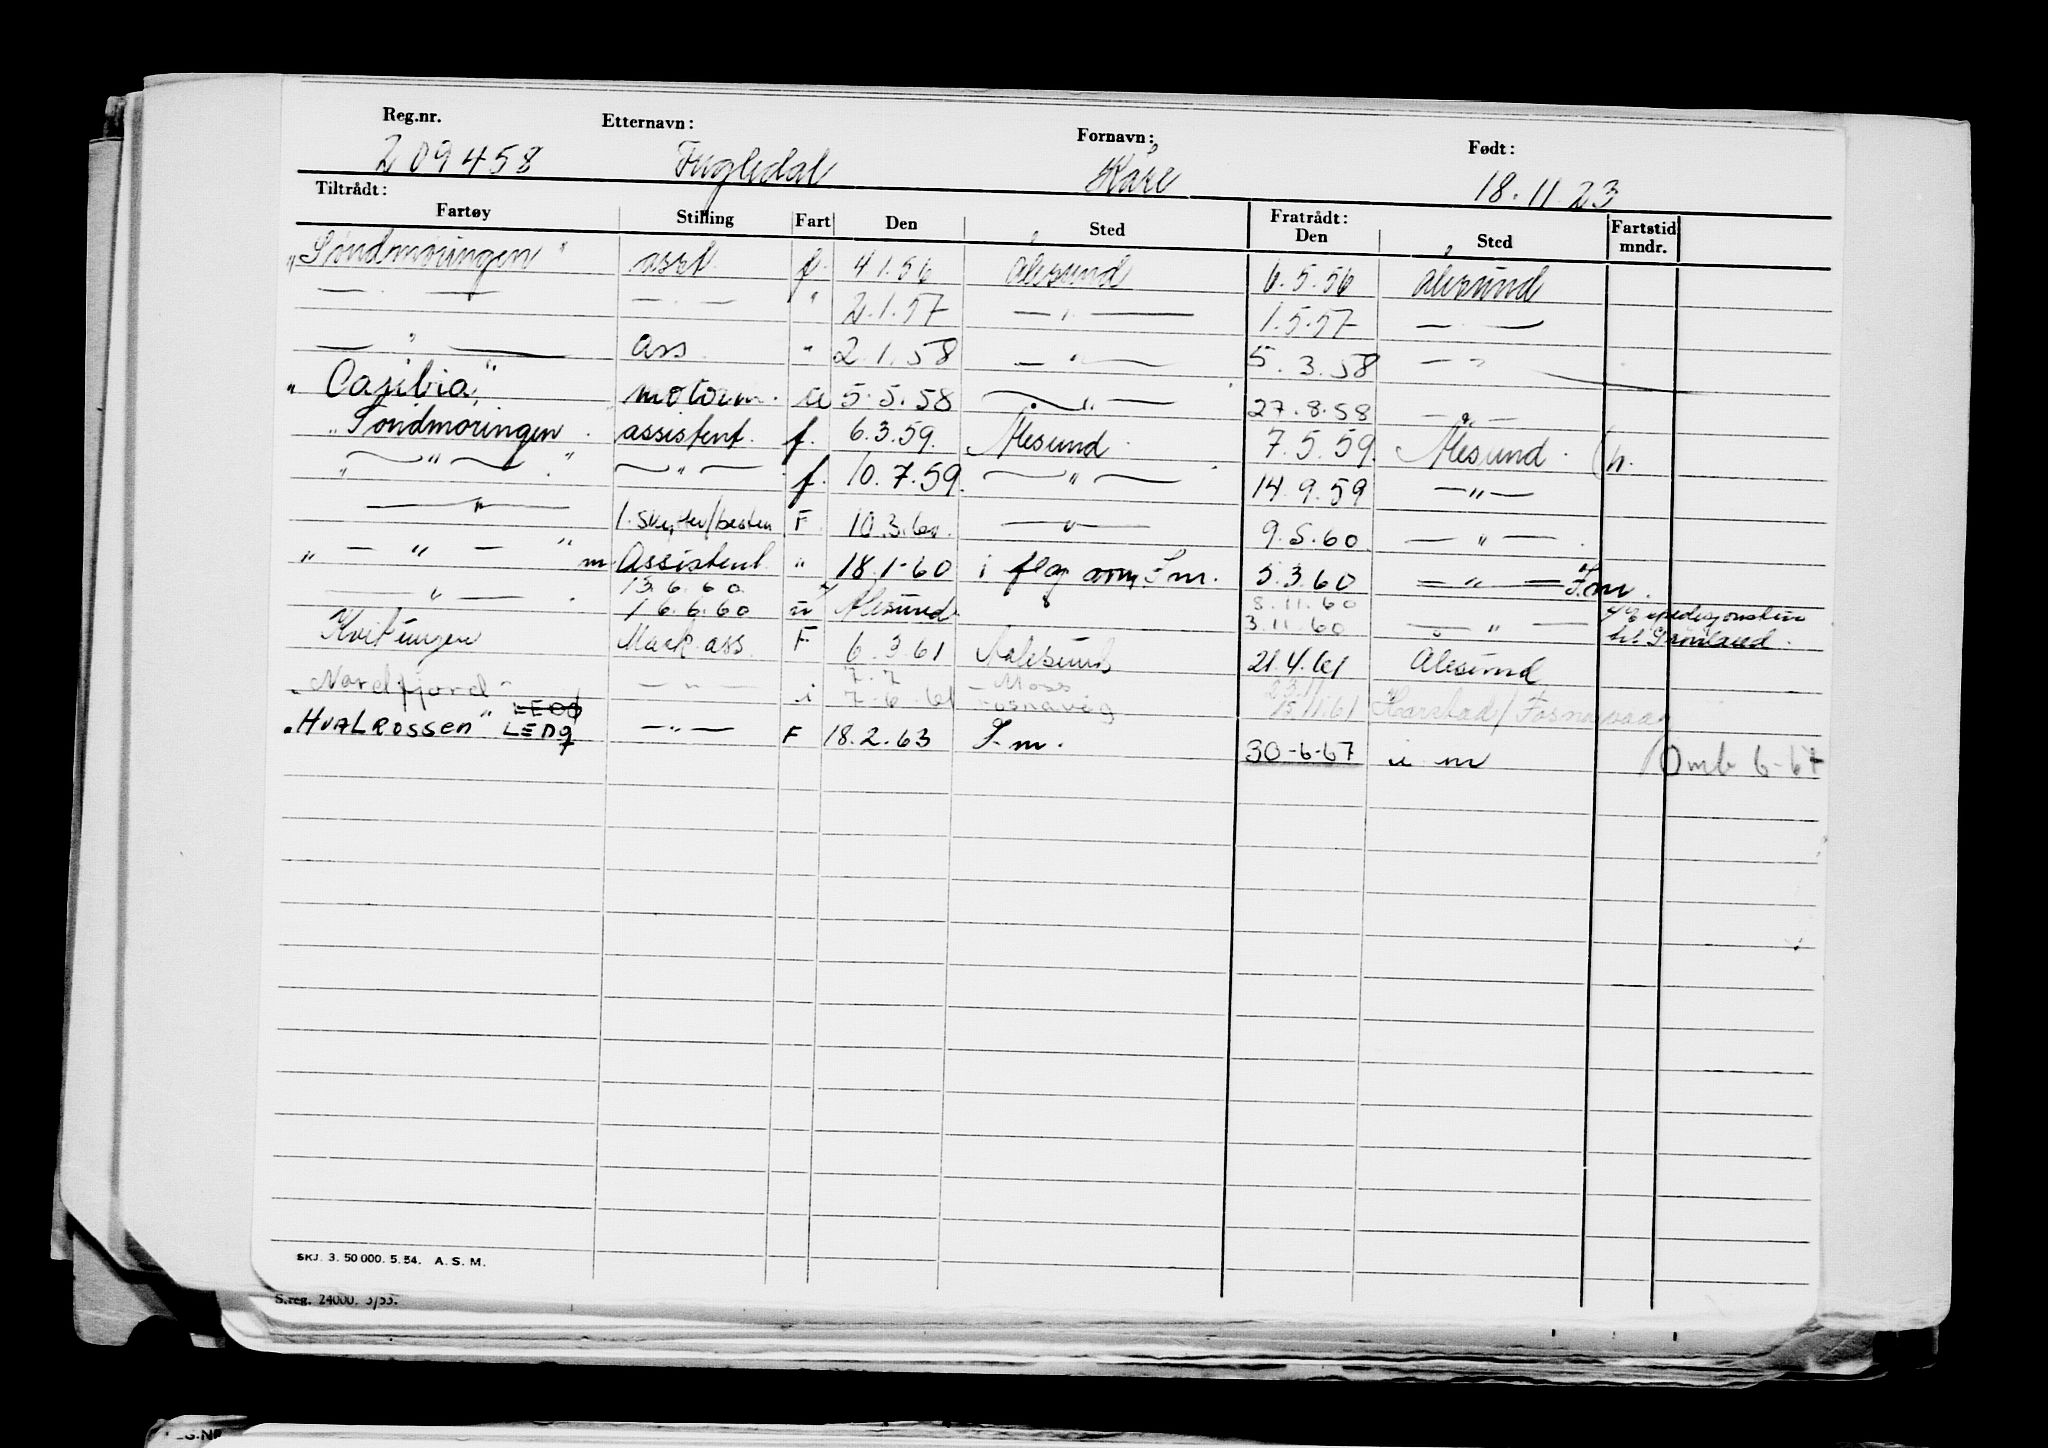 Reg.nr. Etternavn: Fornavn: Født:
209458 Fugledal Kåre 18.11.23
Tiltrådt: Fratrådt:
Fartøy Stilling Fart Den Sted Den Sted Fartstid mndr.
"Søndmøringen" asst. f. 4 1.56 Ålesund 6.5.56 Ålesund
— . — — . — " 2.1.57 — " — 1.5.57 — . —
— " — ass. " 2.1.58 — " — 5.3.58 — " —
"Caribia" motorm. u 5.5.58 — " — 27.8.58 — " —
"Søndmøringen assistent. f. 6.3.59. Ålesund 7.5.59. Ålesund. h.
" — " — " — " — f. 10.7.59. — " — 14.9.59 — " —
— " — 1. skytter/besten F. 10.3.60. — " — 9.5.60 — " —
" — " — " m. Assistent. " 18.1-60 i flg om F.m. 5.3.60 = " = F.m.
— " — 15.6.60 8.11.60
16.6.60 u Ålesund 3.11.60 — " — til Grønland.
Kvitungen Mask.ass. F 6.3.61 Aalesund 21.4.61 Ålesund
7.7 Moss 23.11
"Nordfjord" — " — i 7-6.61 Fosnavåg 15.11.61 Harstad/Fosnavaag
"HVALROSSEN" LEDQ — " — F 18.2.63 F.m. 30-6-67 i m Omb 6-67
SKJ. 3. 50 000. 5. 54. A. S. M.
S.reg. 24000. 3/53.